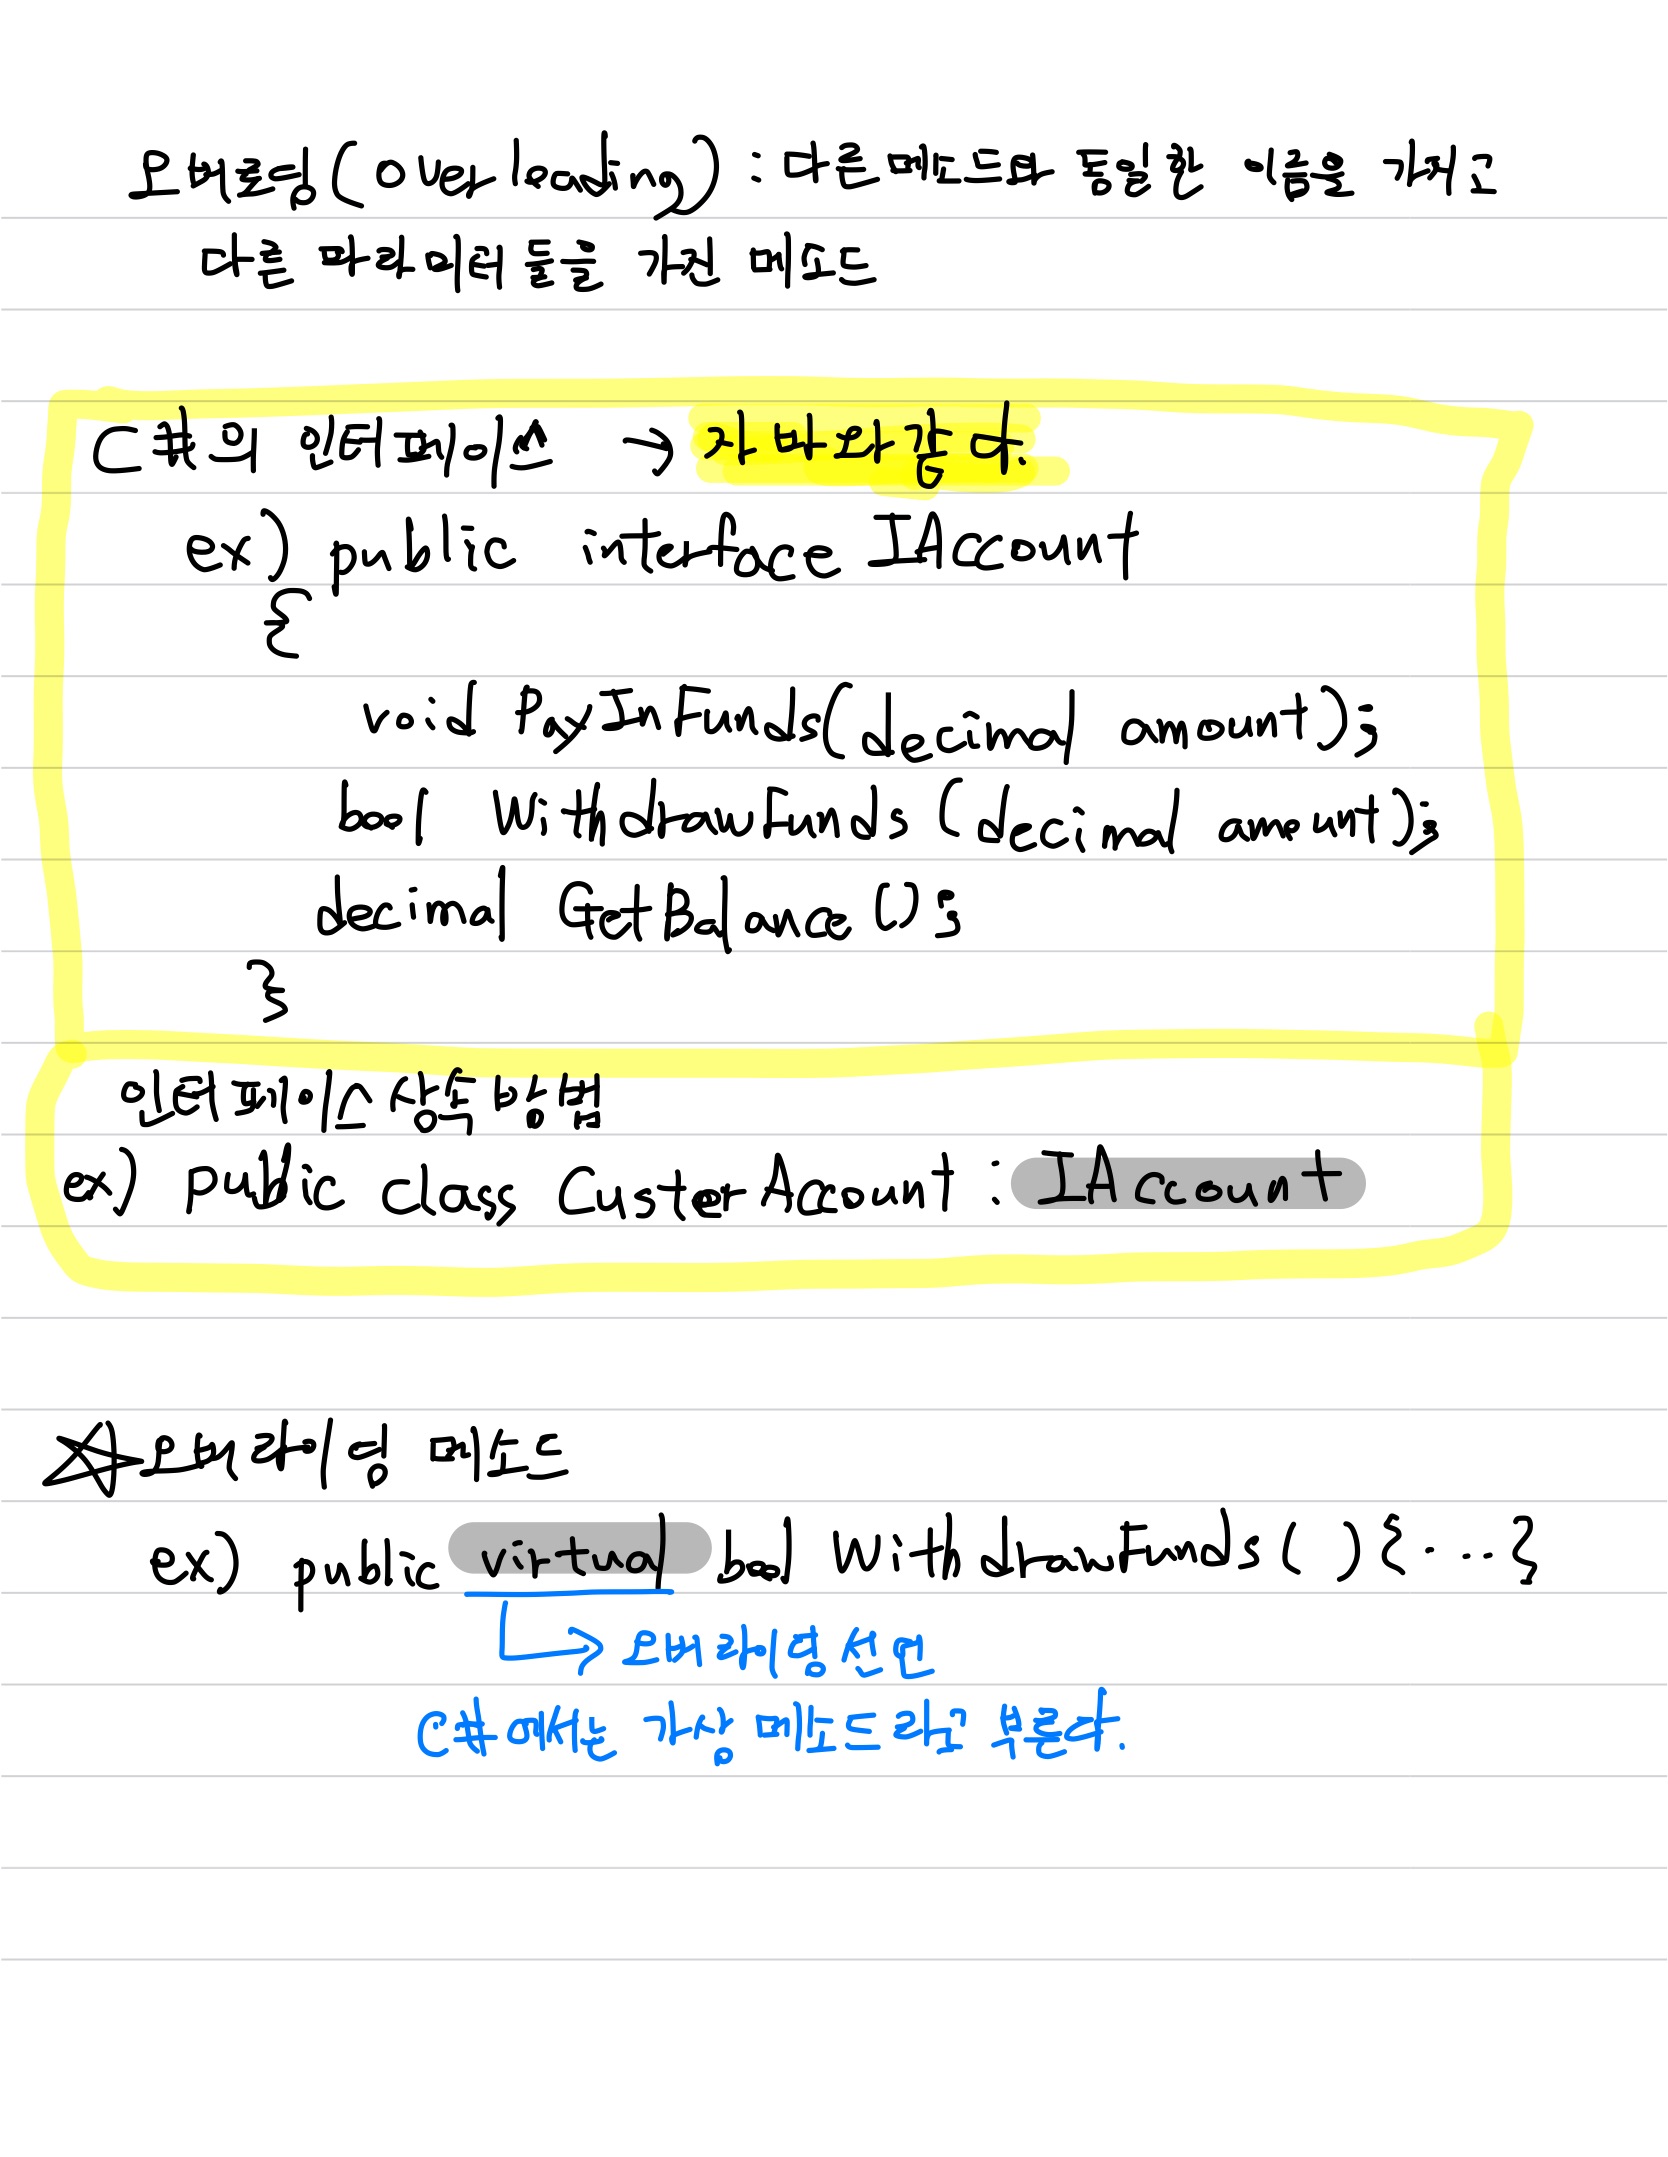 오버로딩(overleading) : 다른 메소드와 동일한 이름을 가지고
다른 파라미터들을 가진 메소드
C#의 인터페이스 → 자바와 같다.
ex) public interface IAccount
{
void PayInFunds(decimal amount);
bool WithdrawFunds (decimal amount);
decimal GetBalance ();
}
인터페이스 상속 방법
ex) public class CusterAccount : IAccount
☆오버라이딩 메소드
ex) public virtual bool WithdrawFunds ( ) {....}
→ 오버라이딩 선언
C#에서는 가상 메소드라고 부른다.